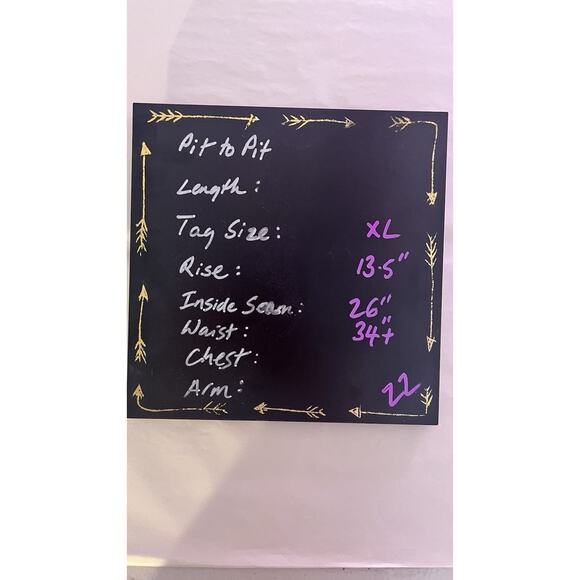 Pit to Pit
Length:
Tag Size: XL
Rise: 13.5"
Inside Seam: 26"
Waist: 34"+
Chest:
Arm:
22